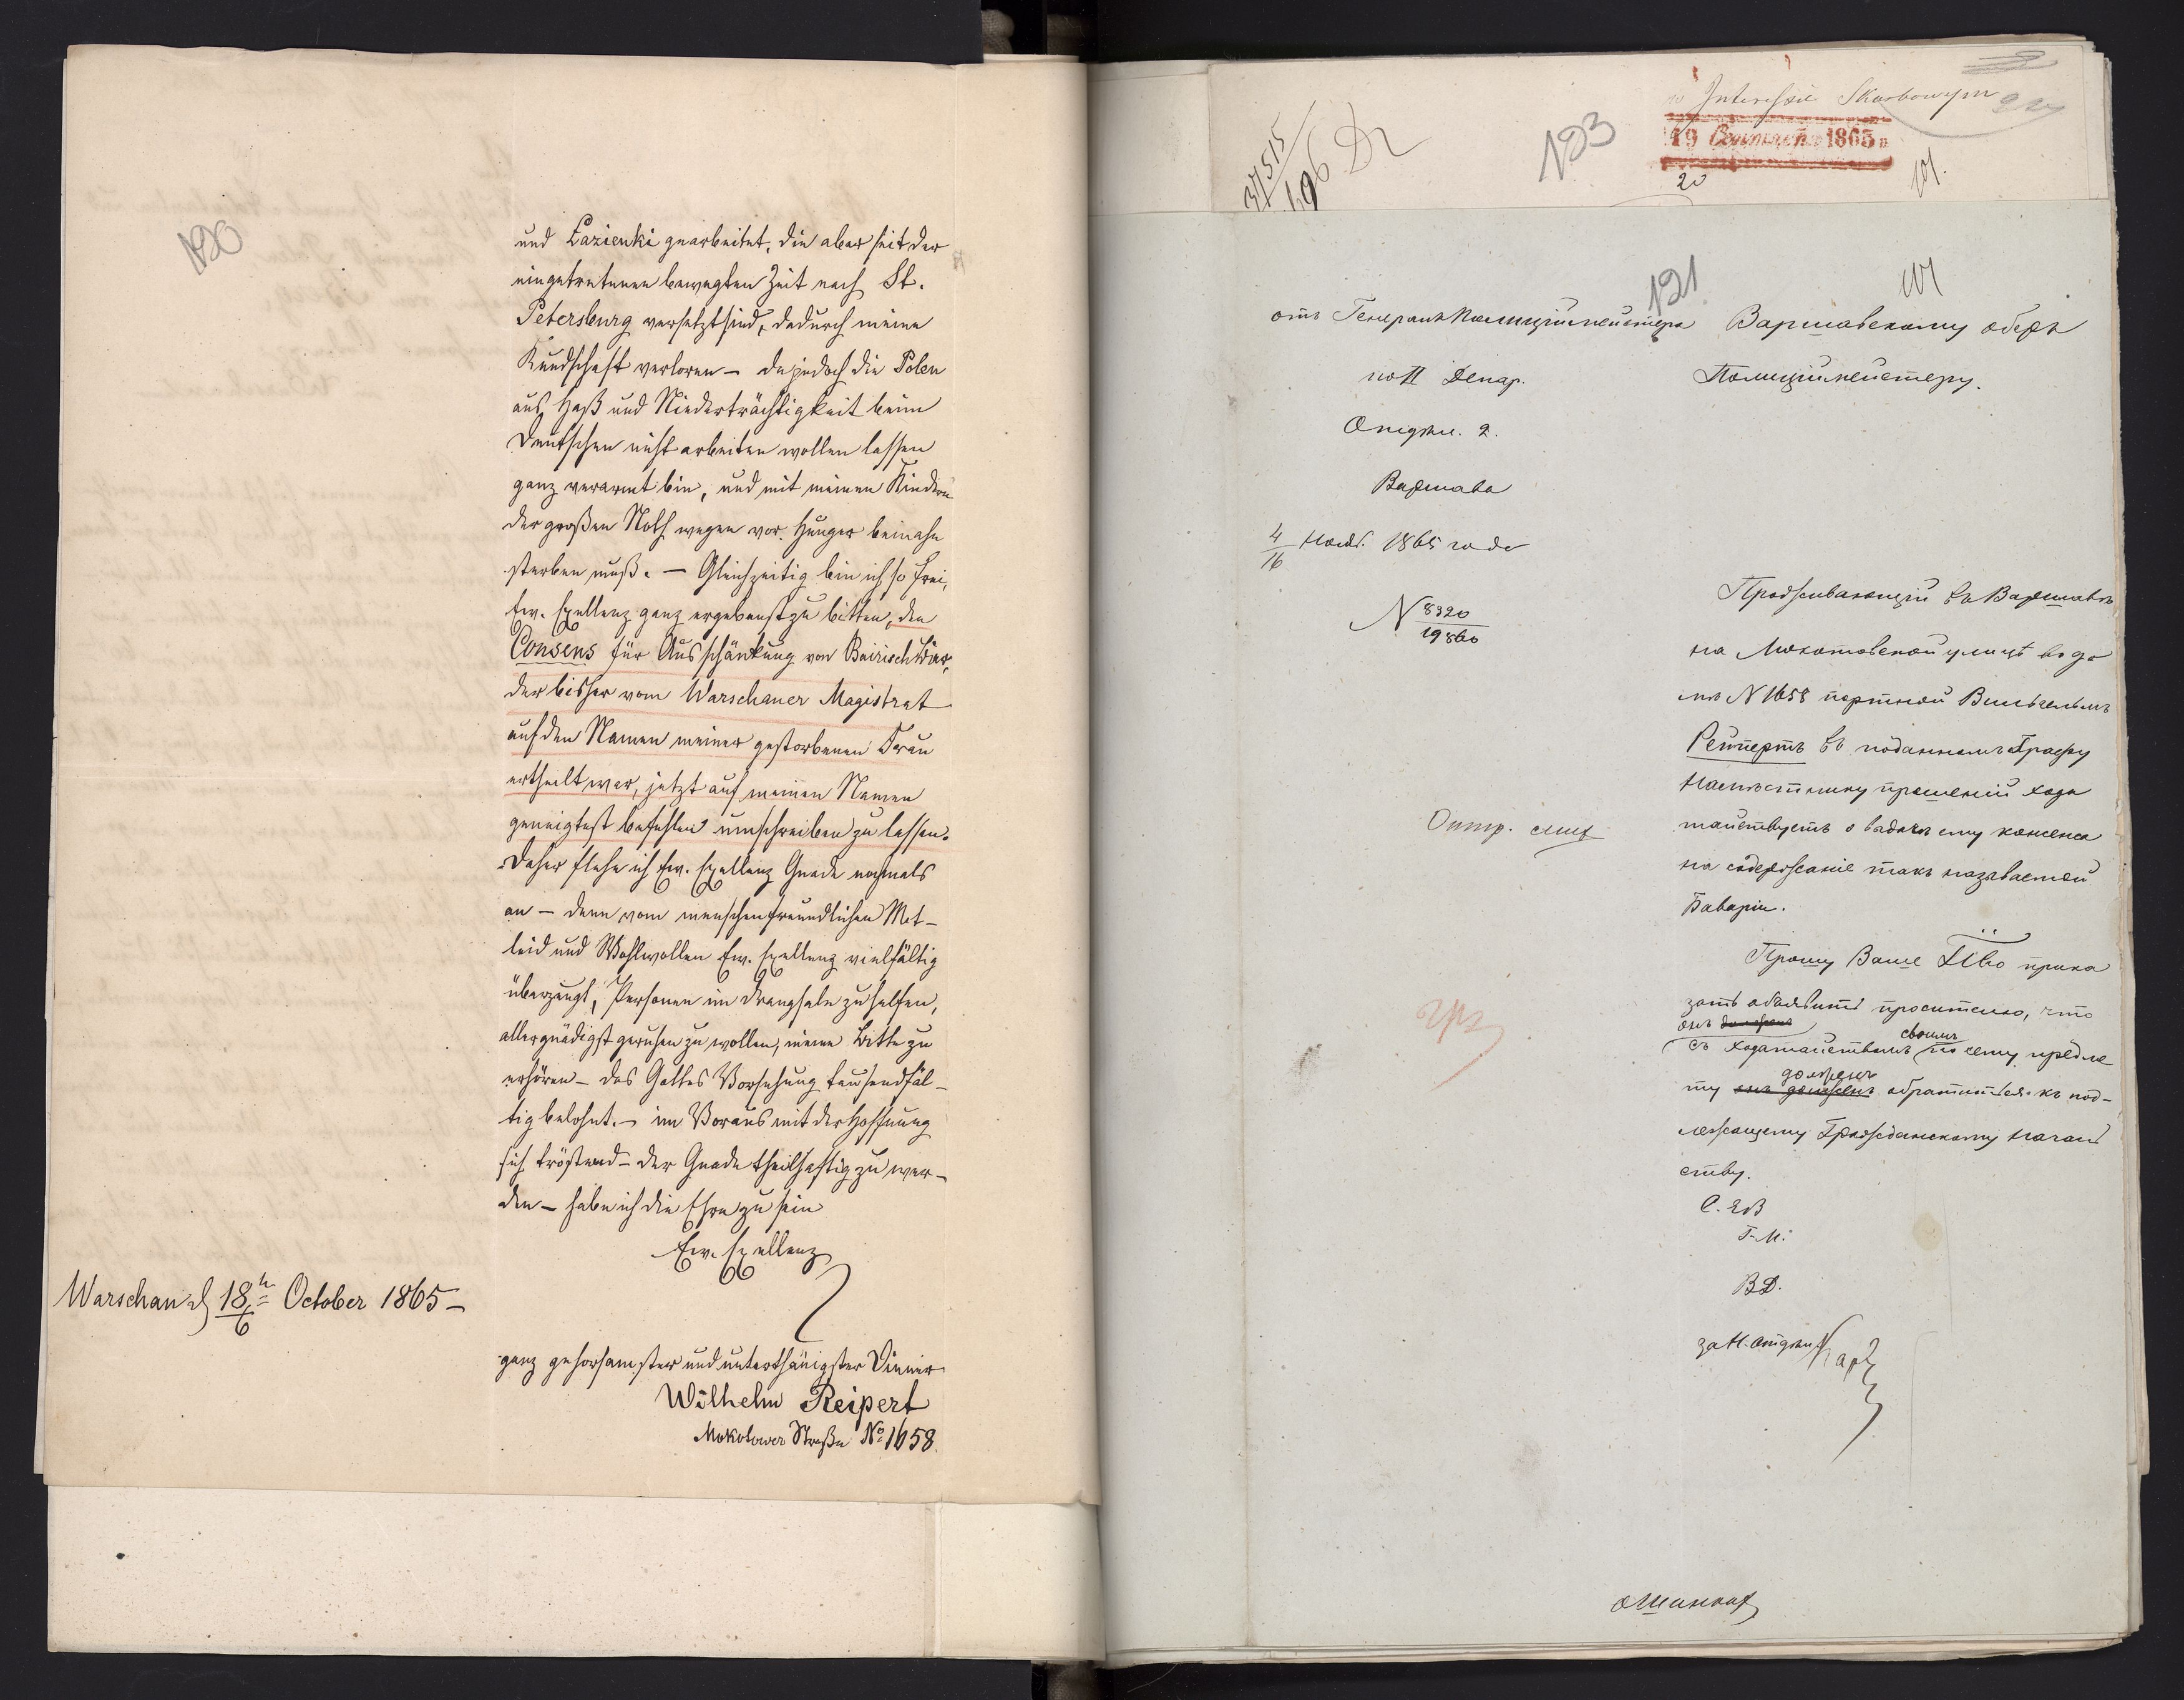 120
und Lazienki gearbeitet, die aber seit der
eingetretenen bewegten Zeit nach St.
Petersburg versetzt sind, dadurch meine
Kundschaft verloren – da jedoch die Polen
aus Haß und Niederträchtigkeit beim
Deutschen nicht arbeiten wollen lassen
ganz verarmt bin, und mit meinen Kindern
der großen Noth wegen vor Hunger beinahe
sterben muß. – Gleichzeitig bin ich so frei,
Ew. Exellenz ganz ergebenst zu bitten, den
Consens für Ausschänkung von Bairisch Bier,
der bisher vom Warschauer Magistrat
auf den Namen meiner gestorbenen Frau
ertheilt war, jetzt auf meinen Namen
geneigtest befehlen umschreiben zu lassen.
Daher flehe ich Ew. Exellenz Gnade nochmals
an – denn vom menschenfreundlichen Met-
leid und Wohlwollen Ew. Exellenz vielfältig
überzeugt, Personen im Drangsale zu helfen,
allergnädigst geruhen zu wollen, meine Bitte zu
erhören – das Gottes Vorsehung tausendfäl-
tig belohnt. – im Voraus mit der Hoffnung
sich tröstend – der Gnade theilhaftig zu wer-
den – habe ich die Ehre zu sein
Ew. Exellenz
Warschau d 18/6 October 1865 –
ganz gehorsamster und unterthänigster Diener
Wilhelm Reipert
Mokotower Straße No 1658.
Interesie Skarbowym
37515/196
123
19 1865
20
121
отъ Генералъ Полицiймейстера
по II Депар.
Отдѣл. 2.
Варшава
4/16 Нояб. 1865 года
N 8320/19860
Варшавскому оберъ
Полицiймейстеру.
Проживающiй въ Варшавѣ
на Мокотовской улицѣ въ до
мѣ N 1658 портной Вильгельмъ
Рейпертъ въ поданномъ Графу
Намѣстнику прошенiи хода
тайствуетъ о выдачѣ ему консенса
на содержанiе такъ называемой
Баварiи.
Прошу Ваше П-во прика
зать объявить просителю, что
онъ
съ ходатайствомъ своимъ по сему предме
ту онъ долженъ должен обратиться къ под-
лежащему Гражданскому Началь
ству.
С. ЕВ
Г-М.
В.Д.
за Н. Отдѣл